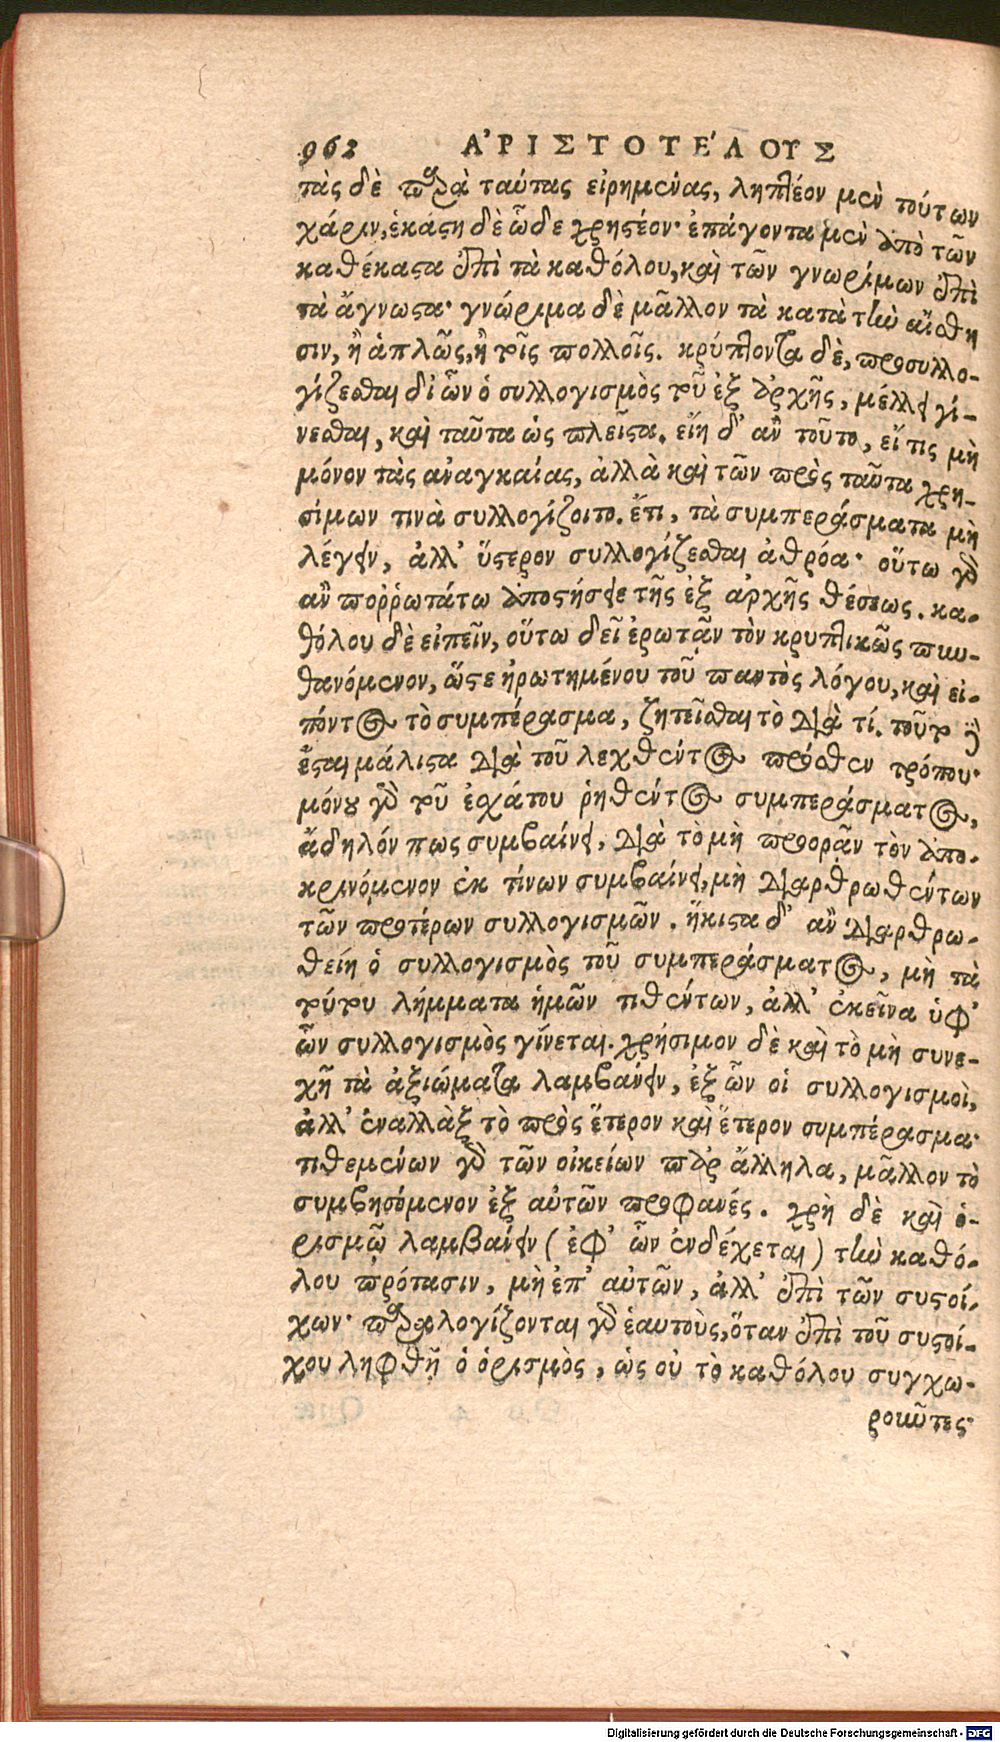 962 ΑΡΙΣΤΟΤΕΛΟΥΣ
τὰς δὲ παρὰ ταύτας εἰρημένας, ληπτέον μὲν τούτων
χάριν, ἑκάστῃ δὲ ὧδε χρηστέον· ἐπάγοντα μὲν ἀπὸ τῶν
καθέκαστα ἐπὶ τὰ καθόλου, καὶ τῶν γνωρίμων ἐπὶ
τὰ ἄγνωστα· γνώριμα δὲ μᾶλλον τὰ κατὰ τὴν αἴσθη
σιν, ἢ ἁπλῶς, ἢ τοῖς πολλοῖς. κρύπτοντα δὲ, προσυλλο-
γίζεσθαι δι' ὧν ὁ συλλογισμὸς τοῦ ἐξ ἀρχῆς, μέλλει γί-
νεσθαι, καὶ ταῦτα ὡς πλεῖστα. εἴη δ' ἂν τοῦτο, εἴ τις μὴ
μόνον τὰς ἀναγκαίας, ἀλλὰ καὶ τῶν πρὸς ταῦτα χρη-
σίμων τινὰ συλλογίζοιτο. ἔτι, τὰ συμπεράσματα μὴ
λέγειν, ἀλλ' ὕστερον συλλογίζεσθαι ἀθρόα· οὕτω γὰρ
ἂν ποῤῥωτάτω ἀποστήσειε τῆς ἐξ ἀρχῆς θέσεως. κα-
θόλου δὲ εἰπεῖν, οὕτω δεῖ ἐρωτᾷν τὸν κρυπτικῶς πυν-
θανόμενον, ὥστε ἠρωτημένου τοῦ παντὸς λόγου, καὶ εἰ-
πόντος τὸ συμπέρασμα, ζητεῖσθαι τὸ διὰ τί. τοῦτο δὲ
ἔσται μάλιστα διὰ τοῦ λεχθέντος πρόσθεν τρόπου·
μόνου γὰρ τοῦ ἐσχάτου ῥηθέντος συμπεράσματος,
ἄδηλόν πως συμβαίνει, διὰ τὸ μὴ προορᾷν τὸν ἀπο-
κρινόμενον ἐκ τίνων συμβαίνει, μὴ διαρθρωθέντων
τῶν προτέρων συλλογισμῶν. ἥκιστα δ' ἂν διαρθρω-
θείη ὁ συλλογισμὸς τοῦ συμπεράσματος, μὴ τὰ
τούτου λήμματα ἡμῶν τιθέντων, ἀλλ' ἐκεῖνα ὑφ'
ὧν συλλογισμὸς γίνεται. χρήσιμον δὲ καὶ τὸ μὴ συνε-
χῆ τὰ ἀξιώματα λαμβάνειν, ἐξ ὧν οἱ συλλογισμοὶ,
ἀλλ' ἐναλλὰξ τὸ πρὸς ἕτερον καὶ ἕτερον συμπέρασμα·
τιθεμένων γὰρ τῶν οἰκείων παρ' ἄλληλα, μᾶλλον τὸ
συμβησόμενον ἐξ αὐτῶν προφανές. χρὴ δὲ καὶ ὁ-
ρισμῷ λαμβάνειν (ἐφ' ὧν ἐνδέχεται) τὴν καθό-
λου πρότασιν, μὴ ἐπ' αὐτῶν, ἀλλ' ἐπὶ τῶν συστοί-
χων· παραλογίζονται γὰρ ἑαυτοὺς, ὅταν ἐπὶ τοῦ συστοί-
χου ληφθῇ ὁ ὁρισμὸς, ὡς οὐ τὸ καθόλου συγχω-
ροῦντες·
Digitalisierung gefördert durch die Deutsche Forschungsgemeinschaft - DFG